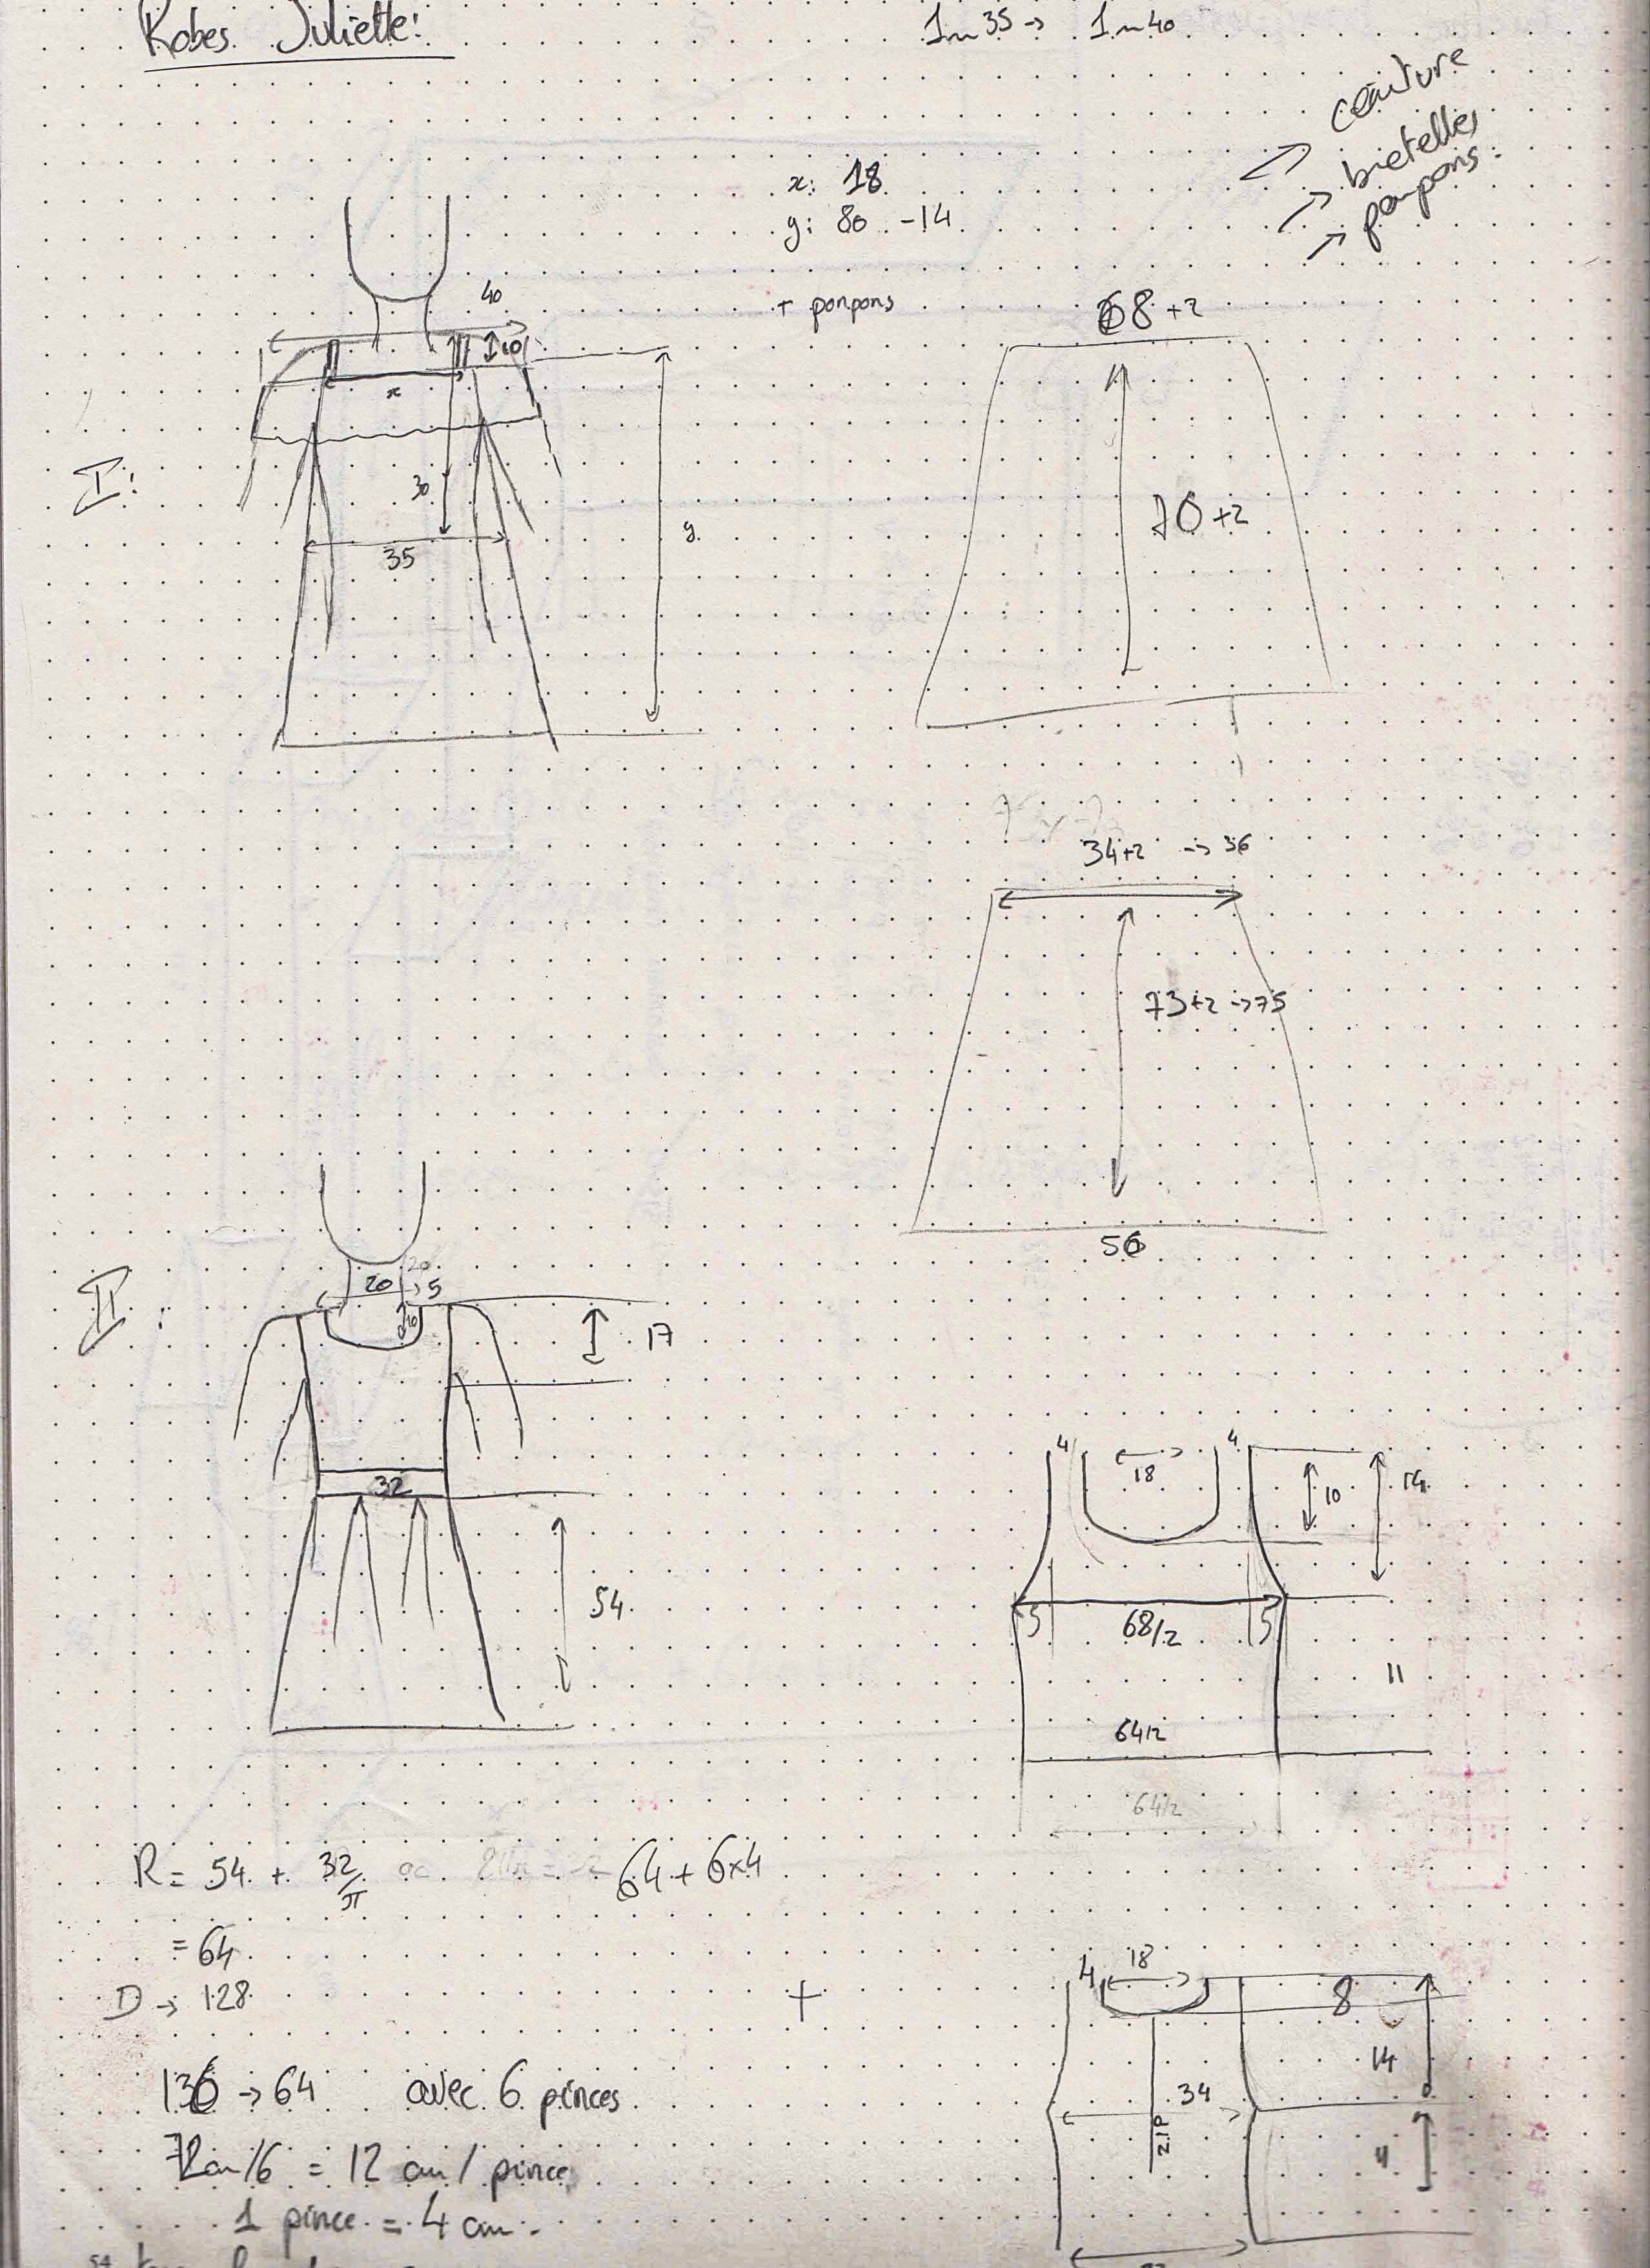 Robes Juliette:
1m35 → 1m40
→ ceinture
→ bretelles
→ pompons.
x: 18
y: 80 -14
+ pompons
40
10
x
I:
30
35
y
68+2
70+2
34+2 → 36
73+2 → 75
56
II:
20
20
5
10
17
32
54
4
18
4
10
14
5
68/2
5
11
64/2
64/2
R = 54 + 32/π
64 + 6×4
= 64
D → 128
136 → 64 avec 6 pinces
72cm/6 = 12 cm/pince
1 pince = 4 cm.
4
18
8
14
34
ZIP
11
54